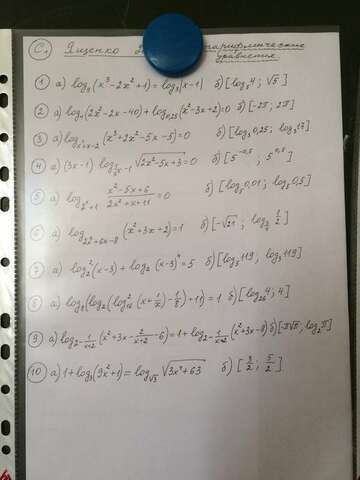 С₁ Ященко логарифмические
уравнения
1 а) log₅(x³-2x²+1)=log₅(x-1) б) [log₅4; √5]
2 а) log₄(2x²-2x-40)+log₀,₂₅(x²-3x+2)=0 б) [-2π; 2π]
а) (x³+2x²-5x-5)=0 б) [log₃0,25; log₃17]
4 а) (3x-1) √(2x²-5x+3)=0 б) [5^(-0,5); 5^(0,5)]
5 а) log_(2ˣ+1) (x²-5x+6)/(2x²+x+11)=0 б) [log₅0,01; log₅0,5]
6 а) (x²+3x+2)=1 б) [-√21; log 1/2]
7 а) log₂²(x-3)+log₂(x-3)⁴=5 б) [log₃119; log₂119]
8 а) log₃(log₂(log₁₆(x+1/2)-1/8)+11)=1 б) [log₂₆4; 4]
9 а) log_(2-1/(x+2))(x²+3x-2/(x+2)-6)=1+log_(2-1/(x+2))(x²+3x-8) б) [-π√π; log₂π]
10 а) 1+log₃(9x²+1)=log_√3 √(3x⁴+63) б) [3/2; 5/2]